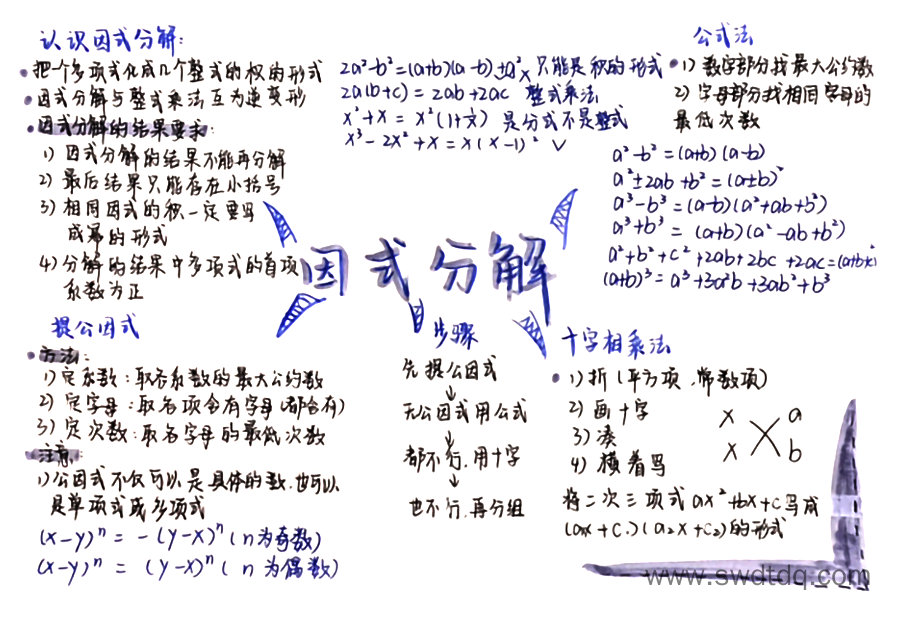 认识因式分解:
把个多项式化成几个整式的积的形式
因式分解与整式乘法互为逆变形
因式分解的结果要求:
1) 因式分解的结果不能再分解
2) 最后结果只能存在小括号
3) 相同因式的积一定要写
成幂的形式
4) 分解的结果中多项式的首项
系数为正
2a²-b²=(a+b)(a-b)+a²× 只能是积的形式
2a(b+c)=2ab+2ac 整式乘法
x²+x=x²(1+1/x) 是分式不是整式
x³-2x²+x=x(x-1)² √
公式法
1) 数字部分找最大公约数
2) 字母部分找相同字母的
最低次数
a²-b²=(a+b)(a-b)
a²±2ab+b²=(a±b)²
a³-b³=(a-b)(a²+ab+b²)
a³+b³=(a+b)(a²-ab+b²)
a²+b²+c²+2ab+2bc+2ac=(a+b+c)²
(a+b)³=a³+3a²b+3ab²+b³
因式分解
提公因式
方法:
1) 定系数:取各系数的最大公约数
2) 定字母:取各项含有字母(都含有)
3) 定次数:取各字母的最低次数
注意:
1) 公因式不仅可以是具体的数,也可以
是单项式或多项式
(x-y)ⁿ=-(y-x)ⁿ(n为奇数)
(x-y)ⁿ=(y-x)ⁿ(n为偶数)
步骤
先提公因式
↓
无公因式用公式
↓
都不行,用十字
↓
也不行,再分组
十字相乘法
1) 折(平方项,常数项)
2) 画十字
3) 凑
4) 横着写
x a
x b
将二次三项式ax²+bx+c写成
(a₁x+c₁)(a₂x+c₂)的形式
www.swdtdq.com